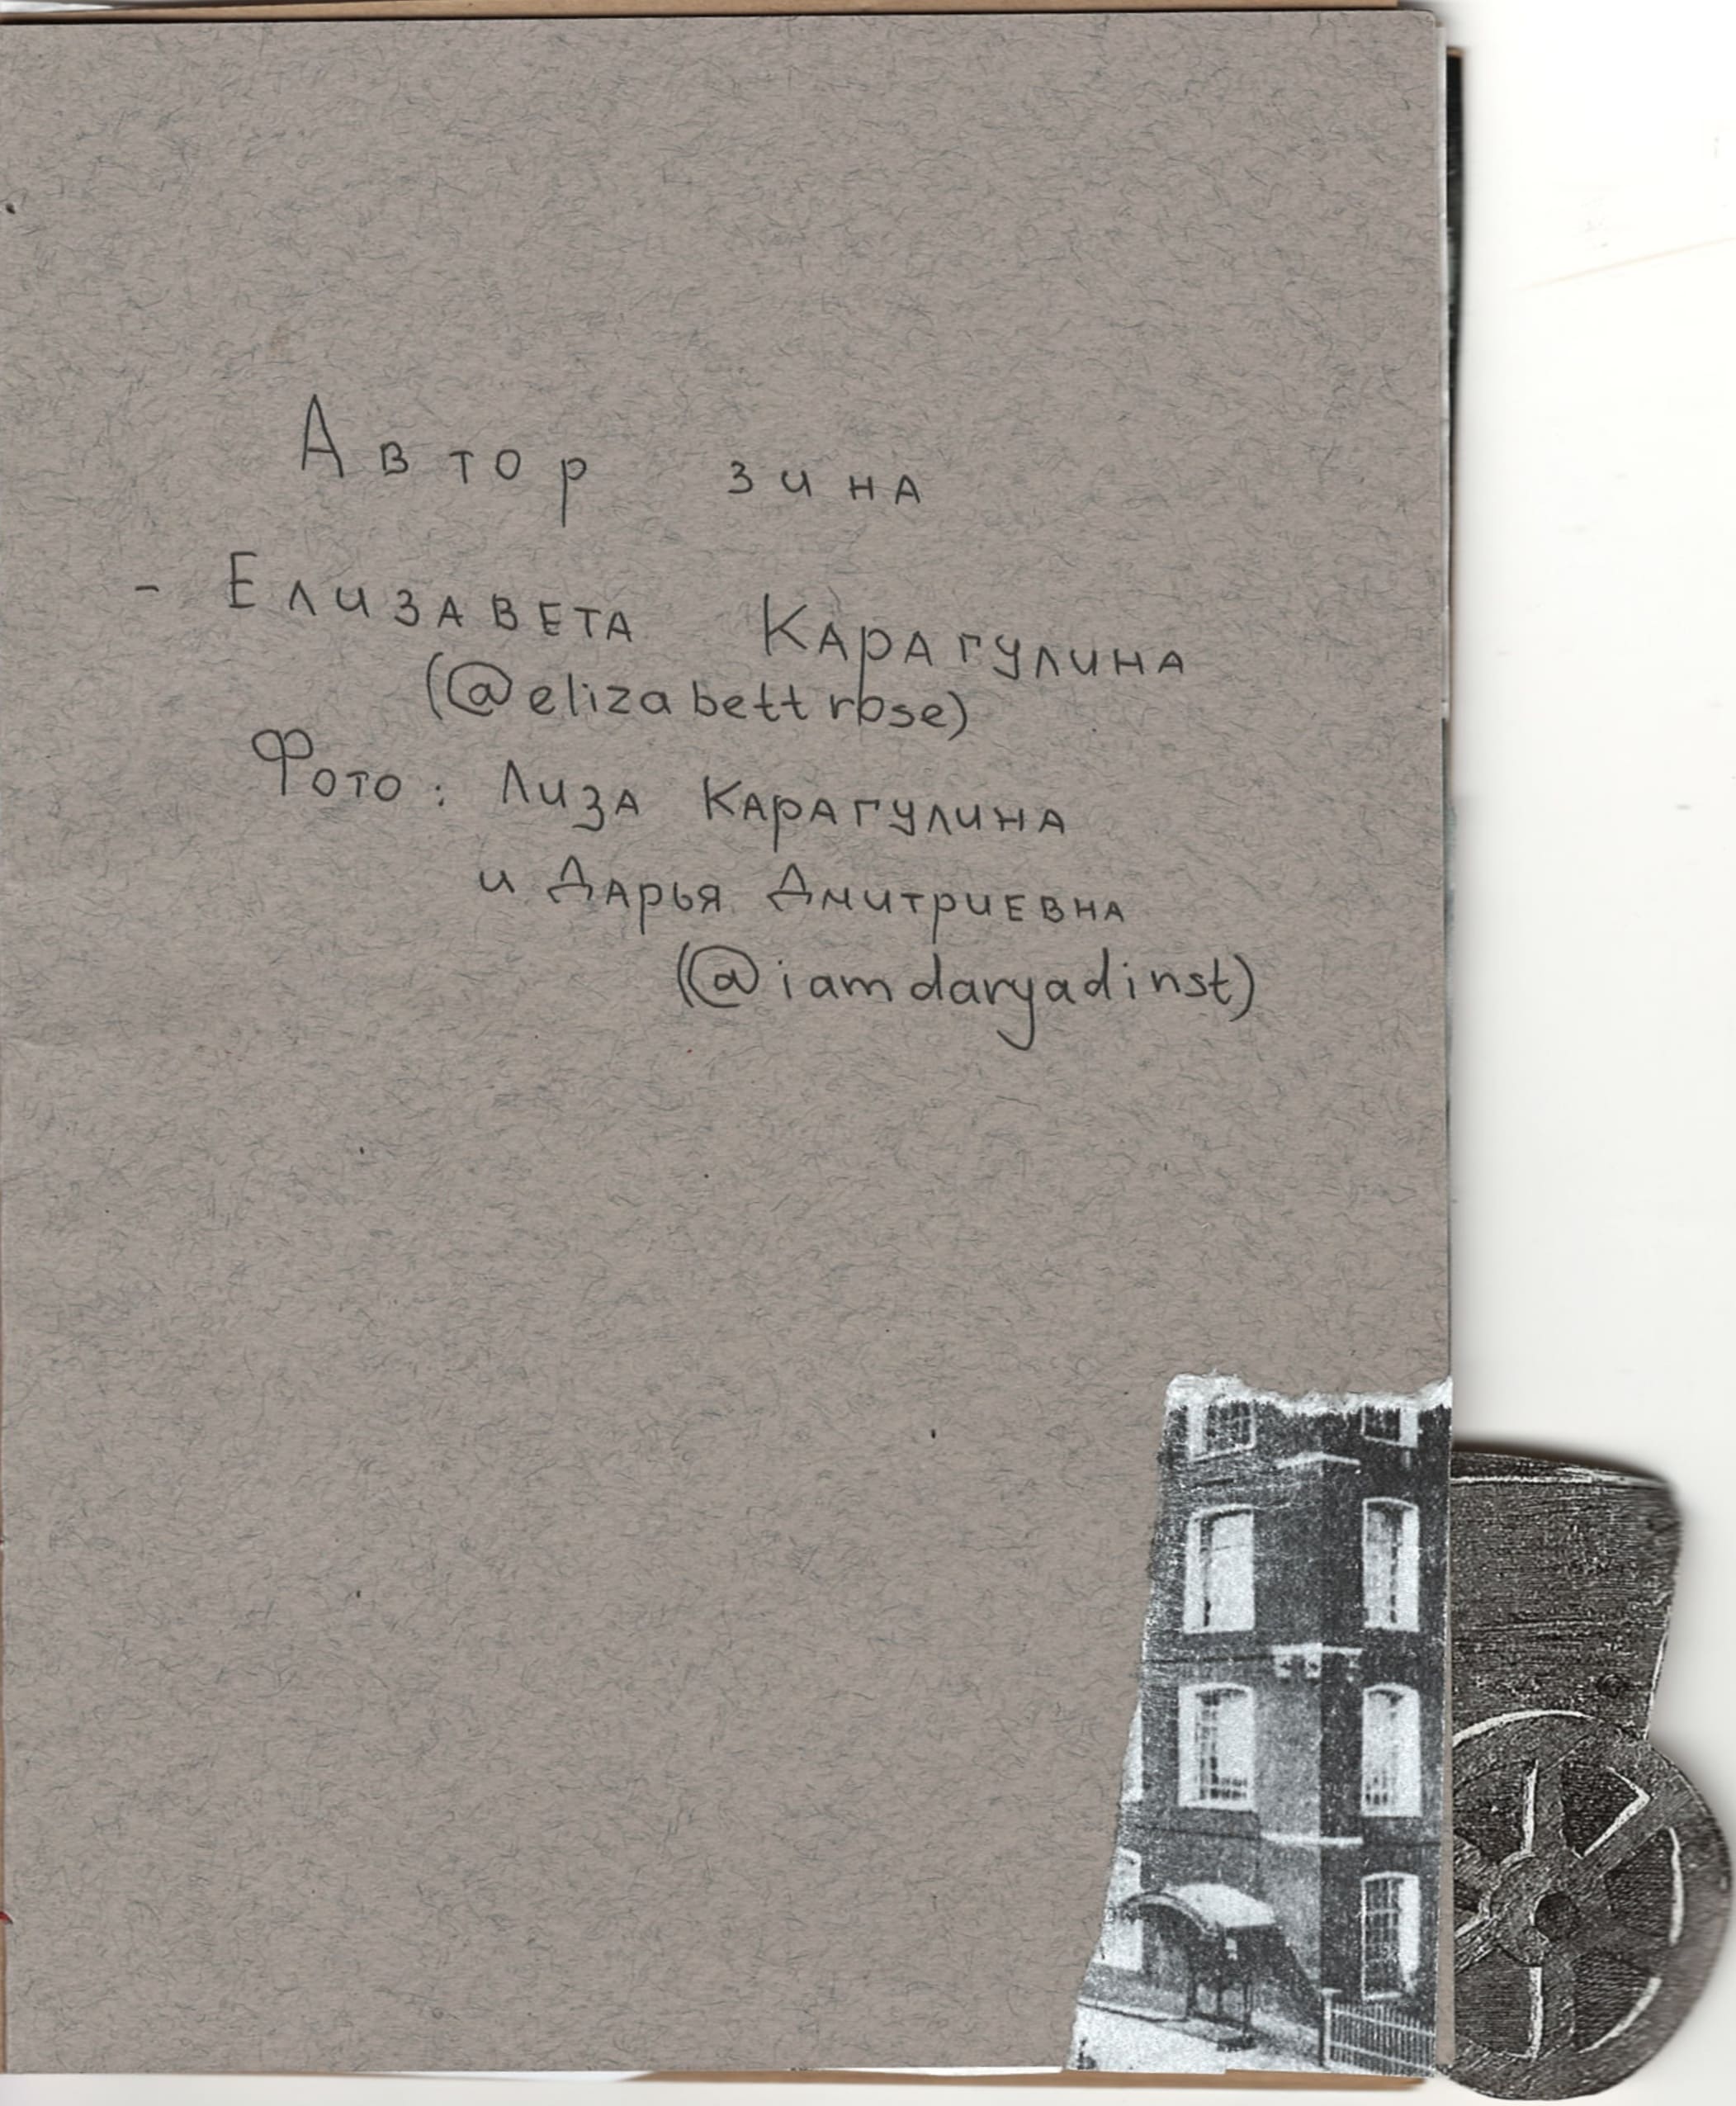 Автор зина
- Елизавета Карагулина
(@elizabettrose)
Фото: Лиза Карагулина
и Дарья Дмитриевна
(@iamdaryadinst)